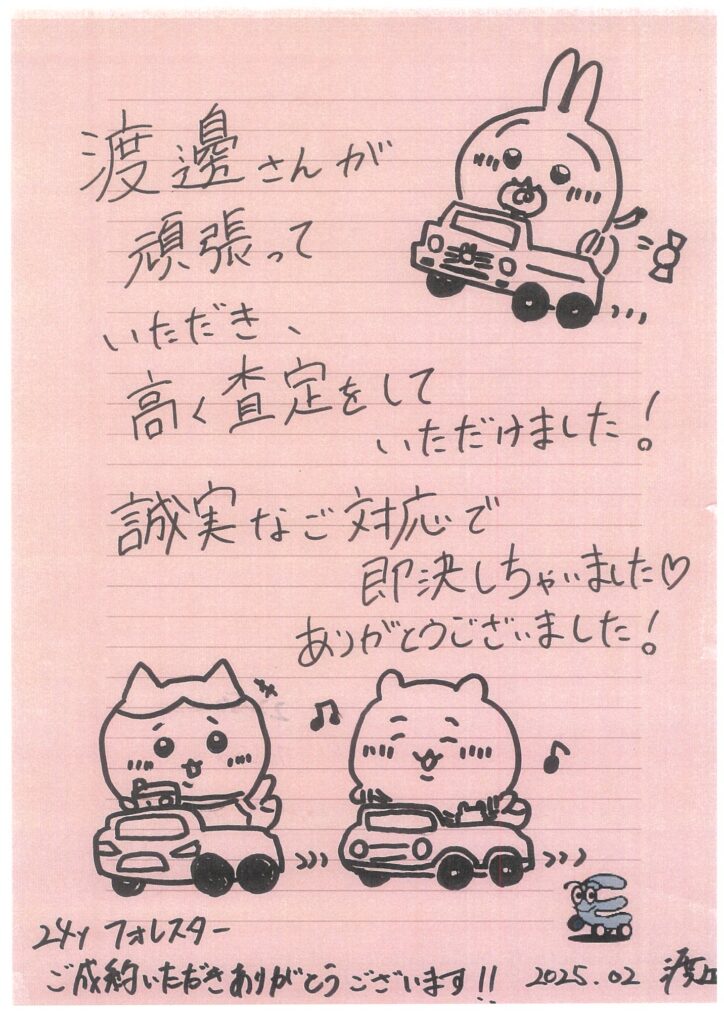 渡邊さんが
頑張って
いただき、
高く査定をして
いただけました！
誠実なご対応で
即決しちゃいました♡
ありがとうございました！
24y フォレスター
ご成約いただきありがとうございます!! 2025.02 渡